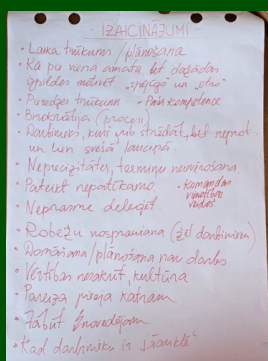 - IZAICINĀJUMI
• Laika trūkums / plānošana
• Kā pie viena amata, bet dažādas
izpildes motivēt "spējīgo" un "otro"
• Pieredzes trūkums - Pašu kompetence
• Birokrātija (procesi)
• Darbinieks, kurš grib strādāt, bet neprot
un lien svešā lauciņā.
• Neprecizitātes, termiņu neievērošana.
• Pateikt nepatīkamo.
• Komandas
vadības
• Neprasme deleģēt
• Robežu nospraušana (žēl darbinieku)
• Domāšana / plānošana nav darbs
• Vērtības nesakrīt, kultūra
• Pareiza pieeja katram
• Kad darbinieks ir jāatlaiž